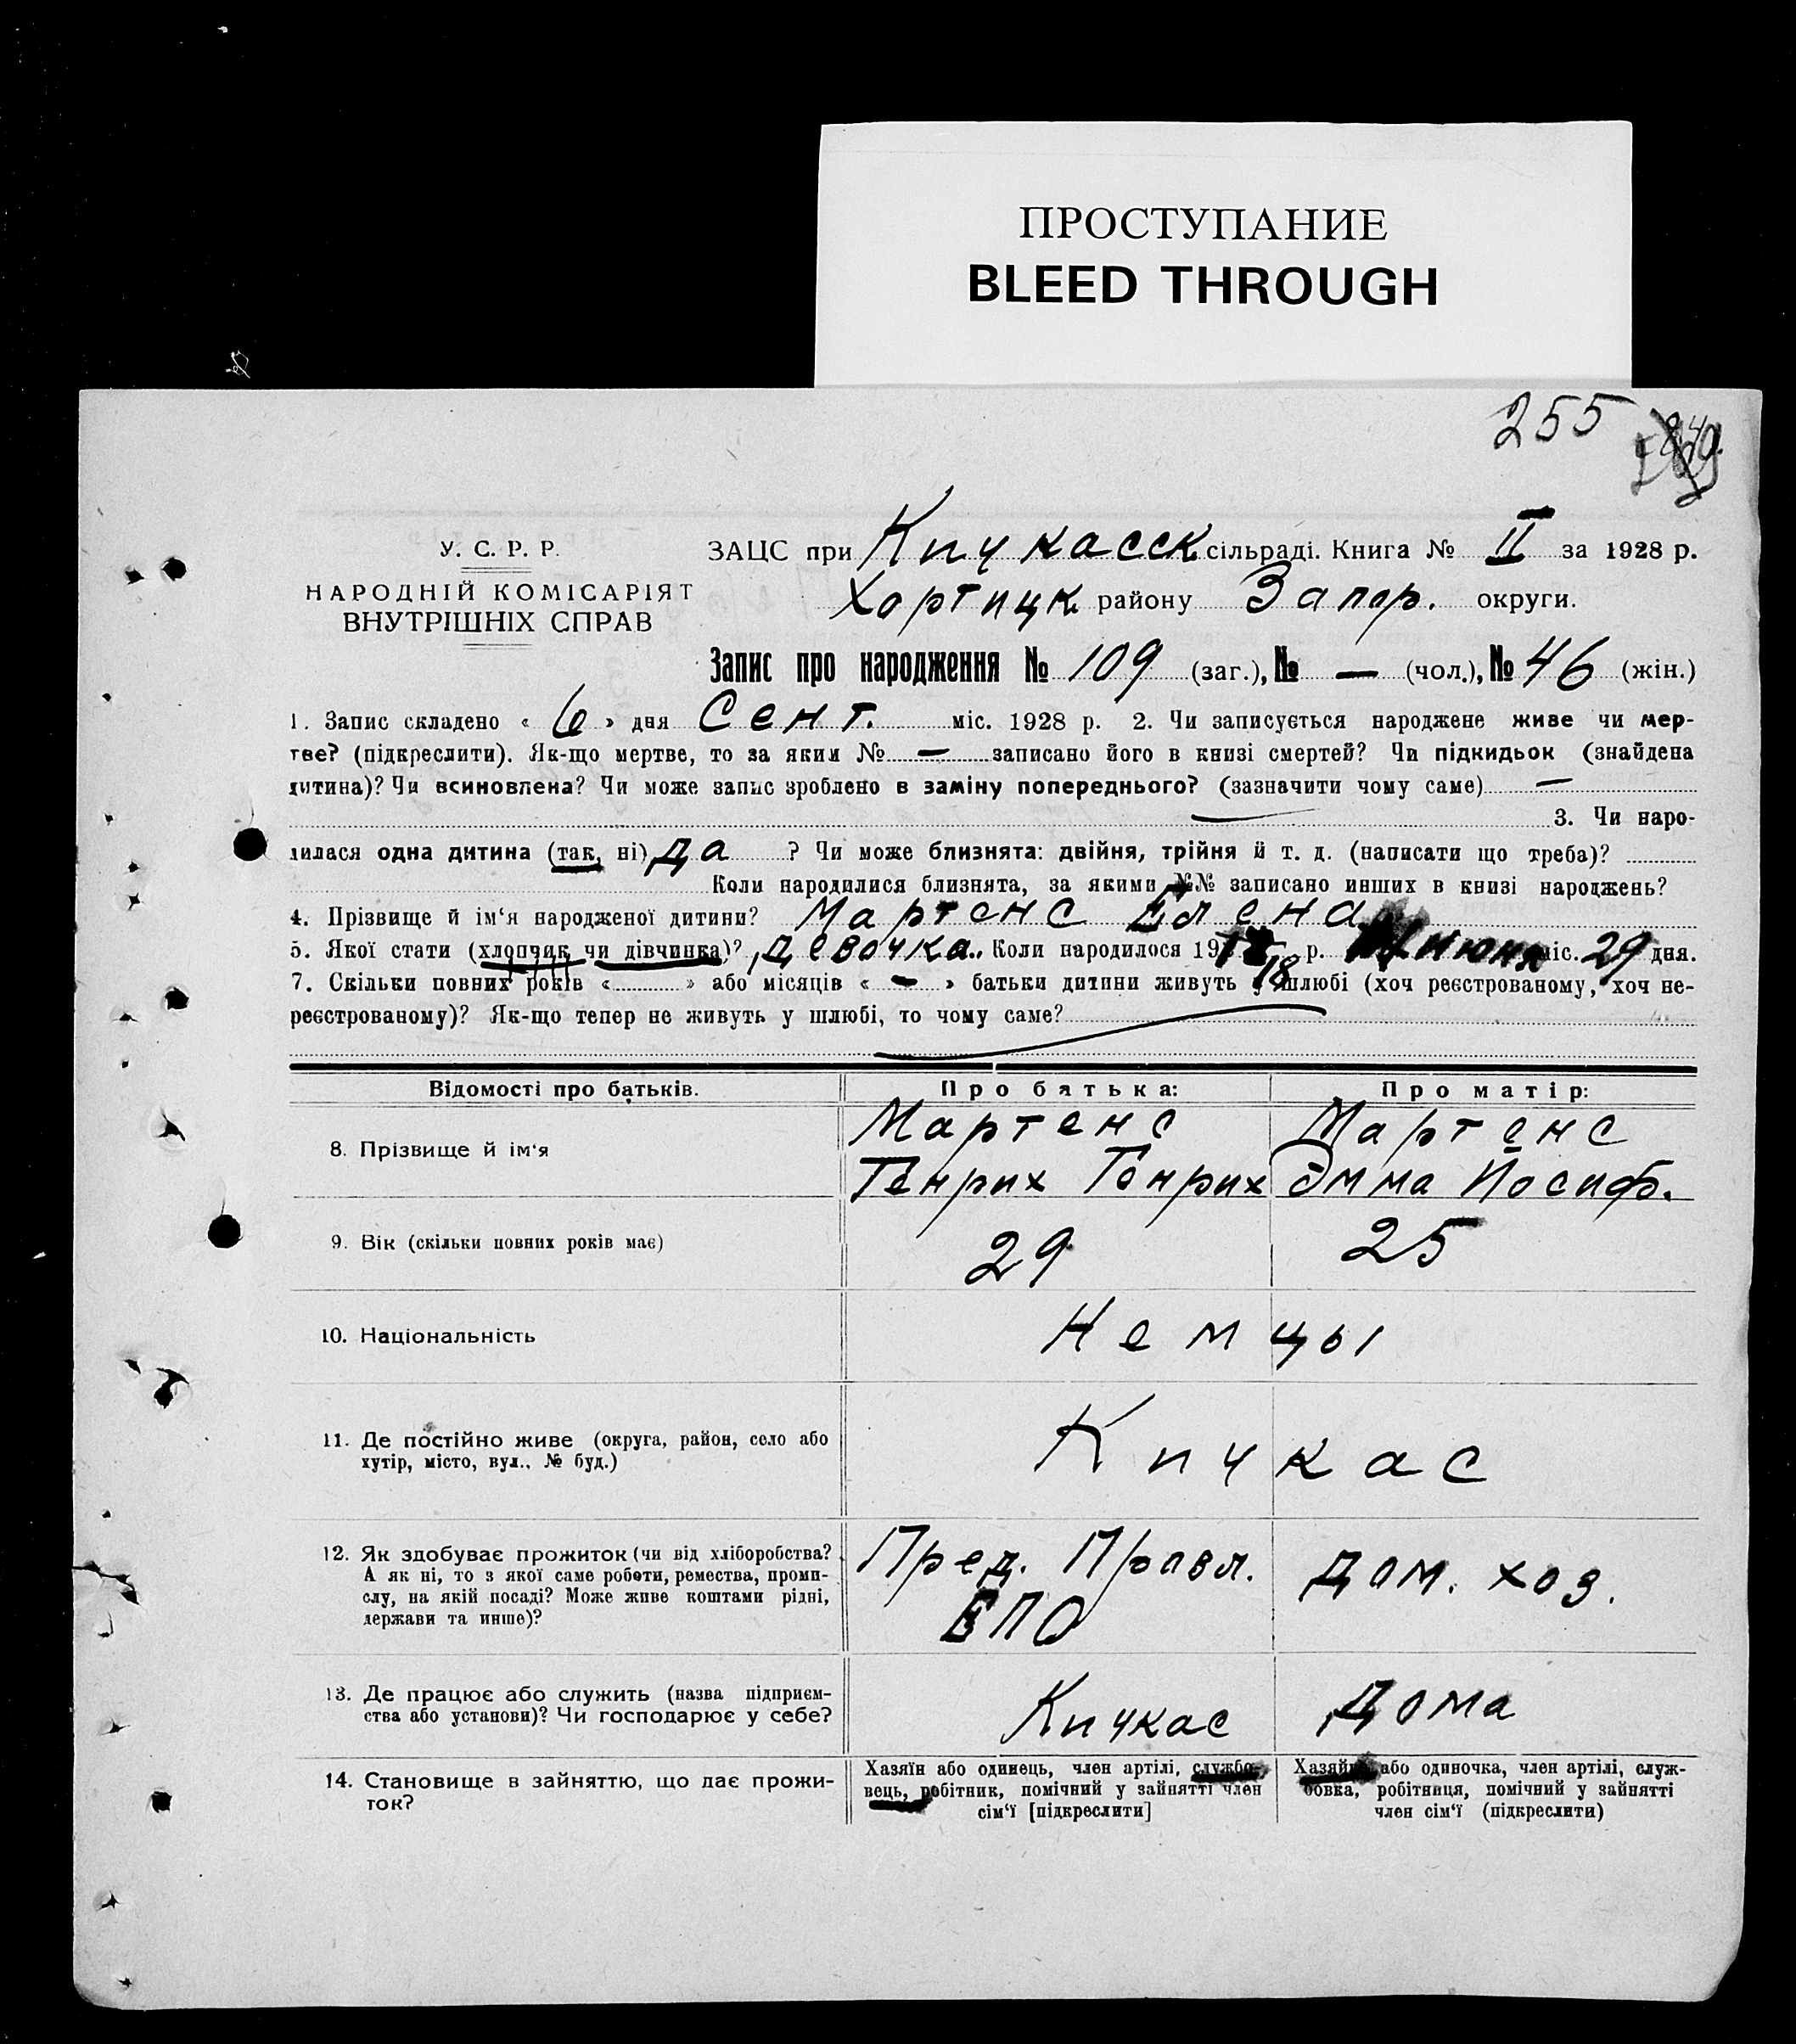 ПРОСТУПАНИЕ
BLEED THROUGH
255
У. С. Р. Р.
НАРОДНІЙ КОМІСАРІЯТ
ВНУТРІШНІХ СПРАВ
ЗАЦС при Кичкасск сільраді. Книга № II за 1928 р.
Хортицк району Запор. округи.
Запис про народження № 109 (заг.), № — (чол.), № 46 (жін.)
1. Запис складено « 6 » дня Сент. міс. 1928 р. 2. Чи записується народжене живе чи мер-
тве? (підкреслити). Як-що мертве, то за яким № — записано його в книзі смертей? Чи підкидьок (знайдена
дитина)? Чи всиновлена? Чи може запис зроблено в заміну попереднього? (зазначити чому саме) —
3. Чи наро-
дилася одна дитина (так, ні) Да ? Чи може близнята: двійня, трійня й т. д. (написати що треба)?
Коли народилися близнята, за якими №№ записано инших в книзі народжень?
4. Прізвище й ім‘я народженої дитини? Мартенс Елена
5. Якої стати (хлопчик чи дівчинка)? Девочка. Коли народилося 19 р. июня міс. 29 дня.
18
7. Скільки повних років « » або місяців « — » батьки дитини живуть у шлюбі (хоч реєстрованому, хоч не-
реєстрованому)? Як-що тепер не живуть у шлюбі, то чому саме?
Відомості про батьків. Про батька: Про матір:
8. Прізвище й ім‘я Мартенс Генрих Генрих Мартенс Эмма Иосиф.
9. Вік (скільки повних років має) 29 25
10. Національність Немцы
11. Де постійно живе (округа, район, село або
хутір, місто, вул., № буд.) Кичкас
12. Як здобуває прожиток (чи від хліборобства?
А як ні, то з якої саме роботи, ремества, проми-
слу, на якій посаді? Може живе коштами рідні,
держави та инше)? Пред. Правл. ЕПО Дом. хоз.
13. Де працює або служить (назва підприєм-
ства або установи)? Чи господарює у себе? Кичкас Дома
14. Становище в зайняттю, що дає прожи-
ток?
Хазяїн або одинець, член артілі, службо-
вець, робітник, помічний у зайнятті член
сім‘ї [підкреслити]
Хазяйка або одиночка, член артілі, служ-
бовка, робітниця, помічний у зайнятті
член сім‘ї (підкреслити)